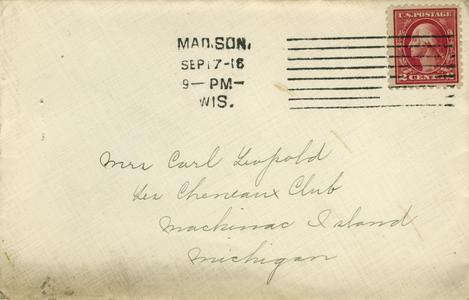 U.S. POSTAGE
2 CENTS 2
MADISON,
SEP 17-16
9— PM—
WIS.
Mrs Carl Leopold
Les Cheneaux Club
Mackinac Island
Michigan